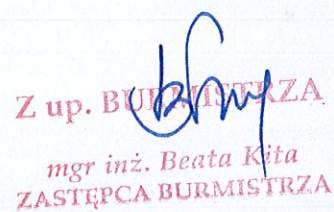 Z up. BURMISTRZA
mgr inż. Beata Kita
ZASTĘPCA BURMISTRZA